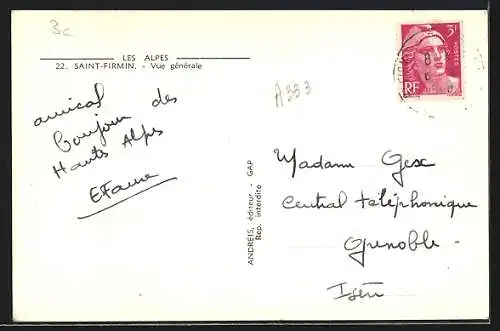 3c
LES ALPES
22. SAINT-FIRMIN. - Vue générale
A353
amical
Bonjour des
Hauts Alpes
EFaure
ANDREIS, éditeur - GAP
Rep. interdite
3F
POSTES
RF
Madame Gex
Central téléphonique
Grenoble
Isère